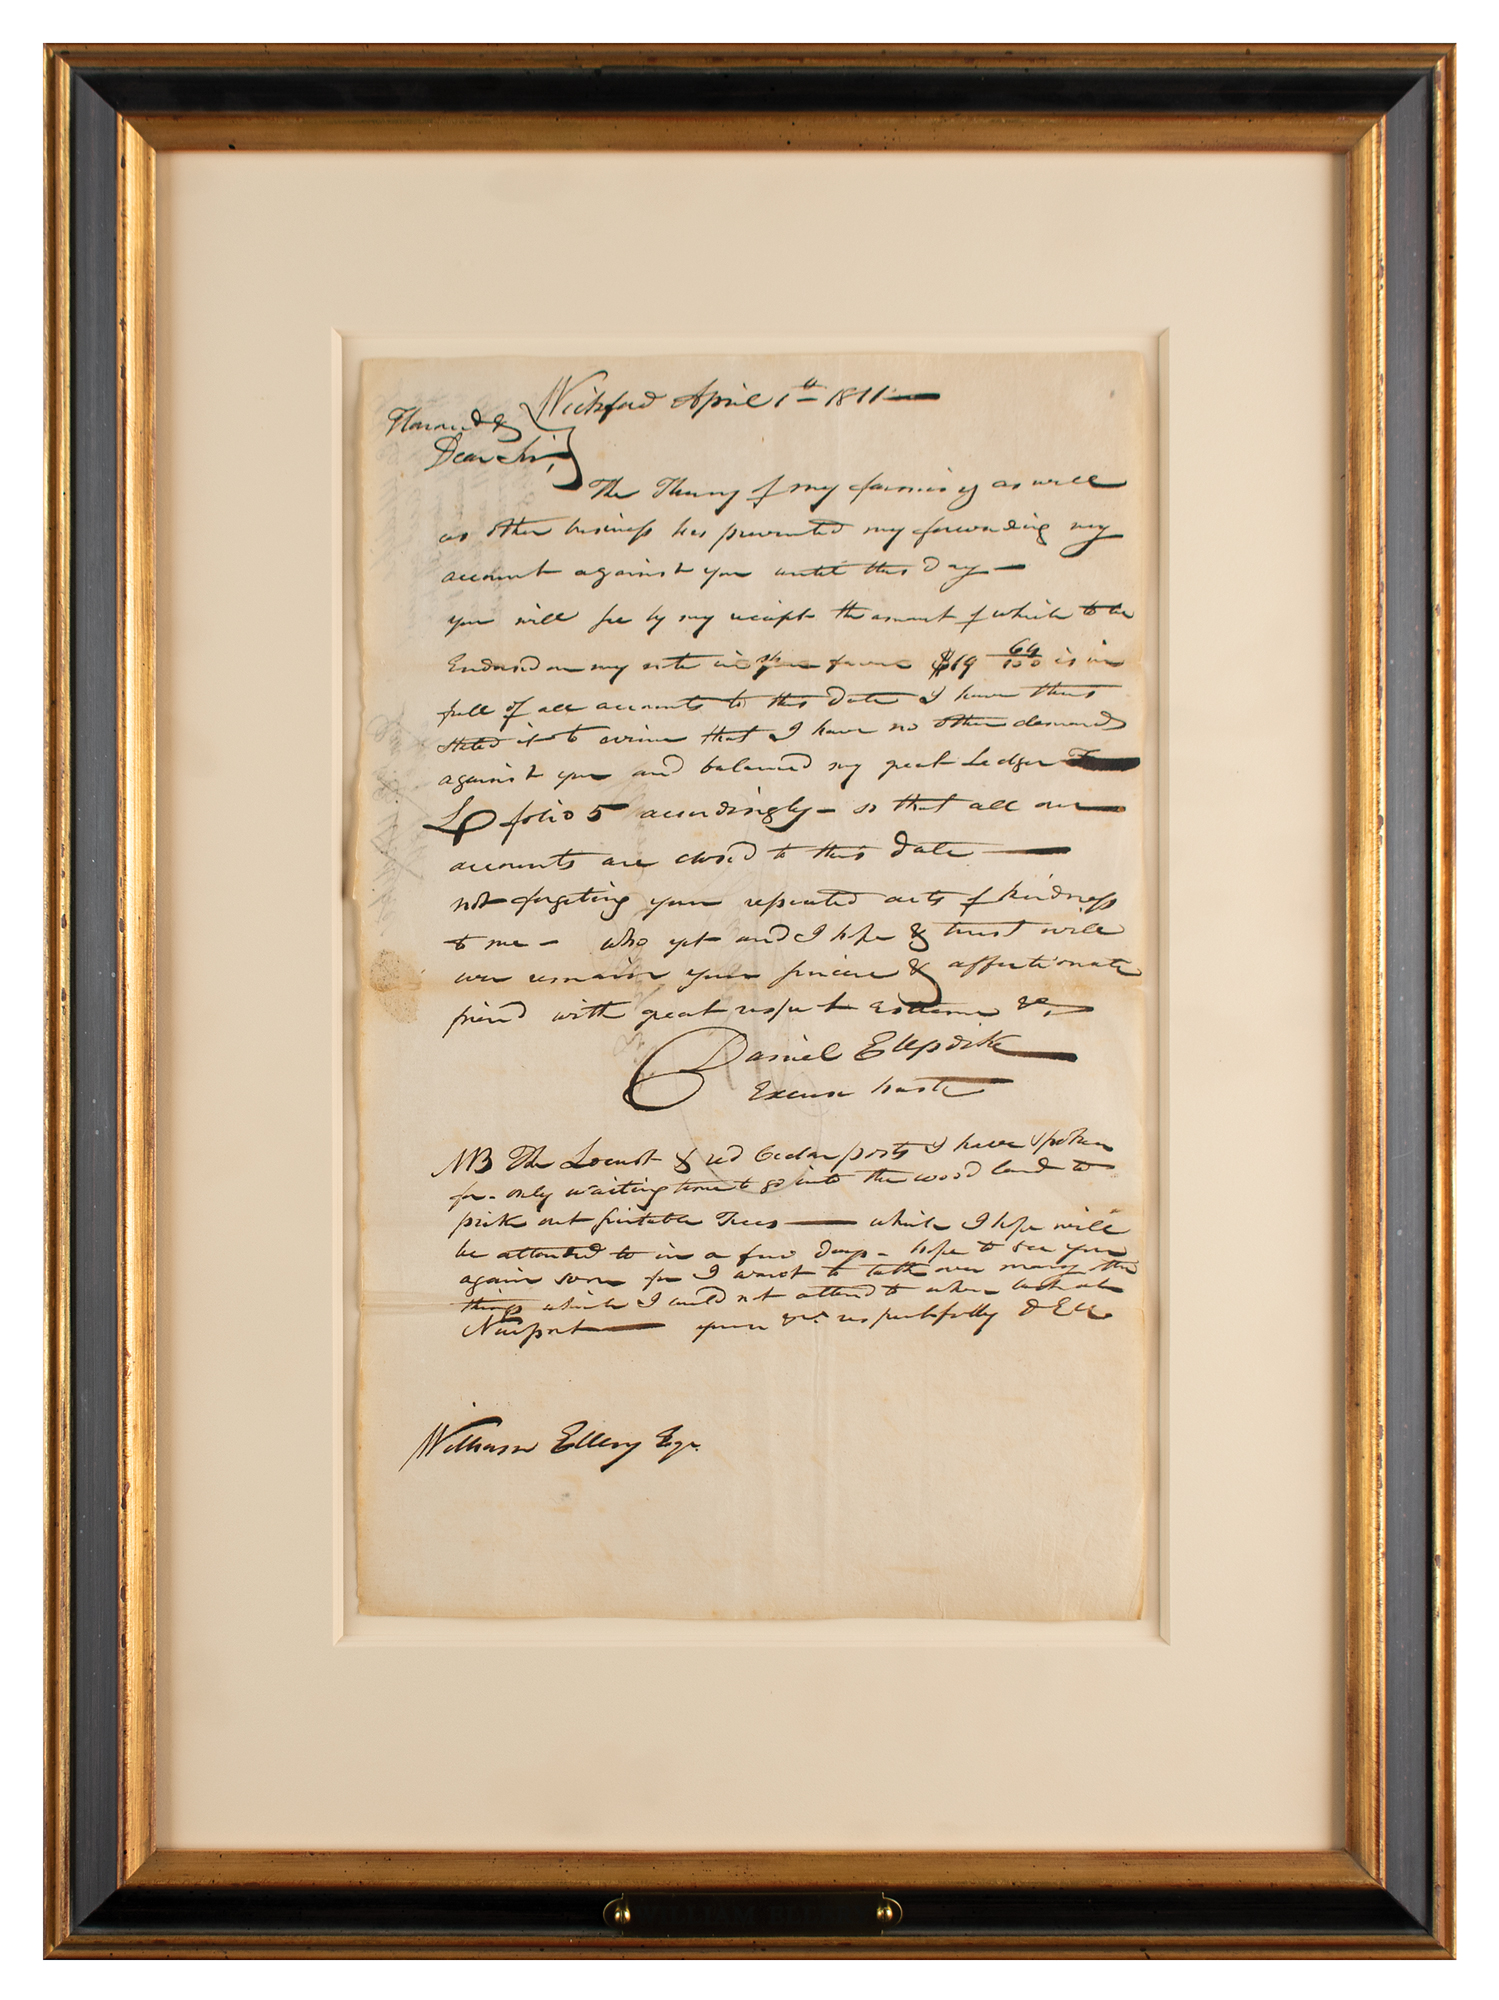 Wickford April 1th 1811
Honored &
Dear Sir,
The of my family as well
as other business has prevented my forwarding my
account against you until this day
you will see by my receipt the amount of which to be
Endorsed on my note in your favor $19 64/100 is in
full of all accounts to this Date I have thus
stated it to evince that I have no other demands
against you and balanced my great Ledger
folio 5 accordingly - so that all our
accounts are closed to this date
not forgeting your repeated acts of kindness
to me - who yet and I hope & trust will
ever remain your sincere & affectionate
friend with great respect Esteem &c,
Daniel E Updike
Excuse haste
NB The Locust & red Cedar posts I have spoken
for - only waiting time to go into the wood land to
pick out suitable Trees which I hope will
be attended to in a few days - hope to see you
again soon for I want to talk over many other
things which I could not attend to when last at
Newport yours &c. respectfully D E U
William Ellery Esqr.
WILLIAM ELLERY